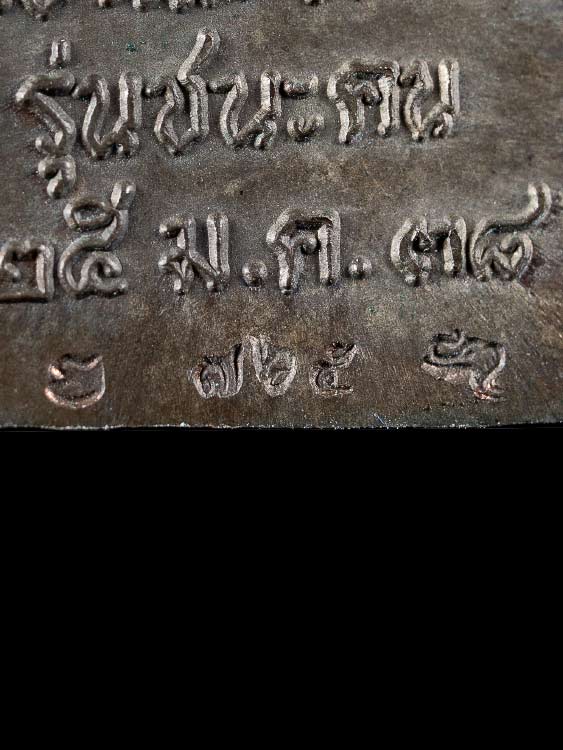 รุ่นชนะคน
๒๕ ม.ค. ๓๘
๗๖๕